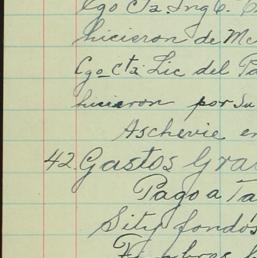 Cgo Cta Ing
hicieron de Mc
Cgo Cta Lic del Pa
hicieron por Su
Aschevie en
42. Gastos Gra
Pago a Ta
Situ fondos